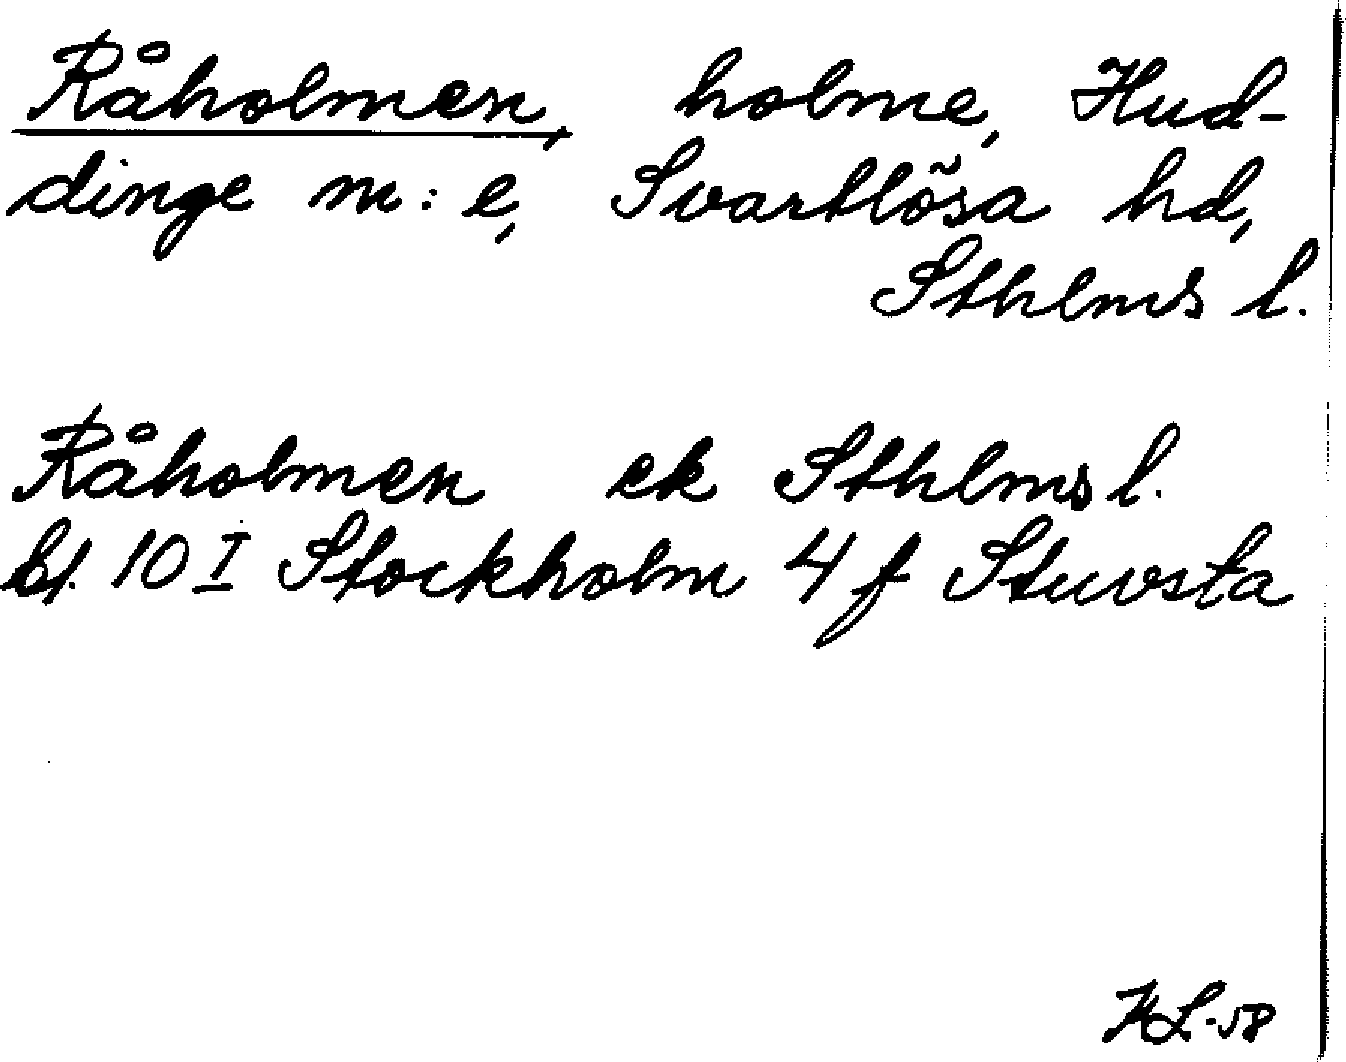 Råholmen, holme, Hud-
dinge m:e, Svartlösa hd,
Sthlms l.
Råholmen ek Sthlms l.
bl. 10 I Stockholm 4 f Stuvsta
KL-58